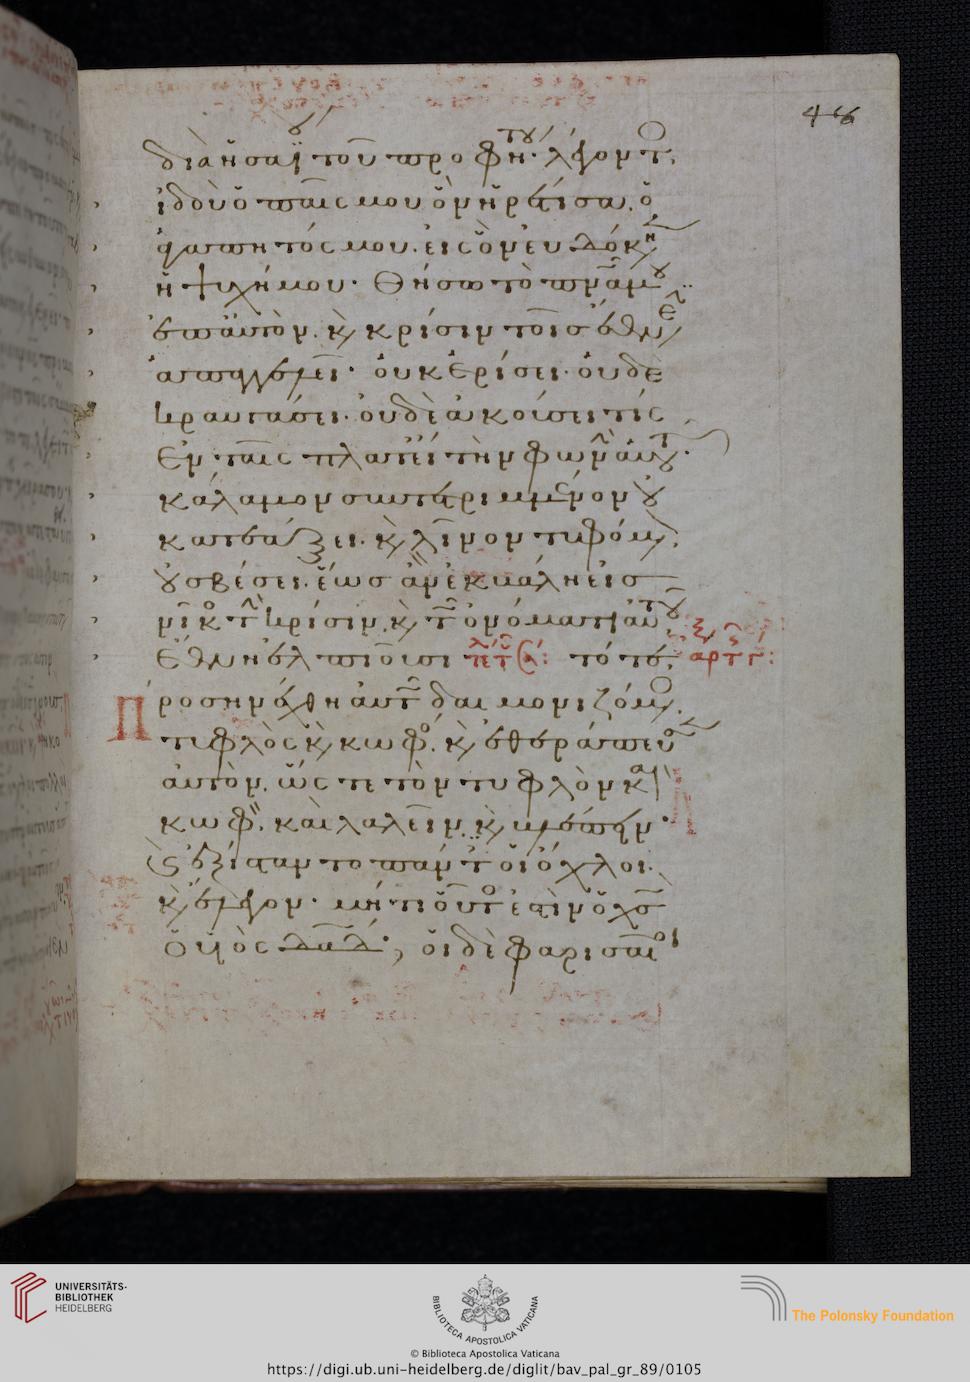 48
διὰ ἡσαΐου τοῦ προφήτου· λέγοντος,
ἰδοὺ ὁ παῖς μου ὃν ἡρέτισα. ὁ
ἀγαπητός μου. εἰς ὃν εὐδόκησεν
ἡ ψυχή μου· θήσω τὸ πνᾶ μου
ἐπ αὐτὸν. κὶ κρίσιν τοῖς ἔθνεσιν
ἀπαγγελεῖ· οὐκ ἐρίσει· οὐδὲ
κραυγάσει· οὐδὲ ἀκούσει τίς
ἐν ταῖς πλατείαις τὴν φωνὴν αὐτοῦ·
κάλαμον συντετριμμένον οὐ
κατεάξει. κὶ λίνον τυφόμενον
οὐ σβέσει. ἕως ἂν ἐκβάλη εἰς
νῖκος τὴν κρίσιν. κὶ τῶ ὀνόματι αὐτοῦ
ἔθνη ἐλπιοῦσι τότε,
Προσηνέχθη αὐτῶ δαιμονιζόμενος.
τυφλὸς κὶ κωφός. κὶ ἐθεράπευσεν
αὐτὸν. ὥστε τὸν τυφλὸν καὶ
κωφὸν. καὶ λαλεῖν κὶ βλέπειν·
Ἐξίσταντο πάντες οἱ ὄχλοι.
κὶ ἔλεγον· μήτι οὗτος ἐστὶν ὁ χς
ὁ υἱὸς δαδ; οἱ δὲ φαρισαῖοι
UNIVERSITÄTS-
BIBLIOTHEK
HEIDELBERG
BIBLIOTECA APOSTOLICA VATICANA
The Polonsky Foundation
© Biblioteca Apostolica Vaticana
https://digi.ub.uni-heidelberg.de/diglit/bav_pal_gr_89/0105